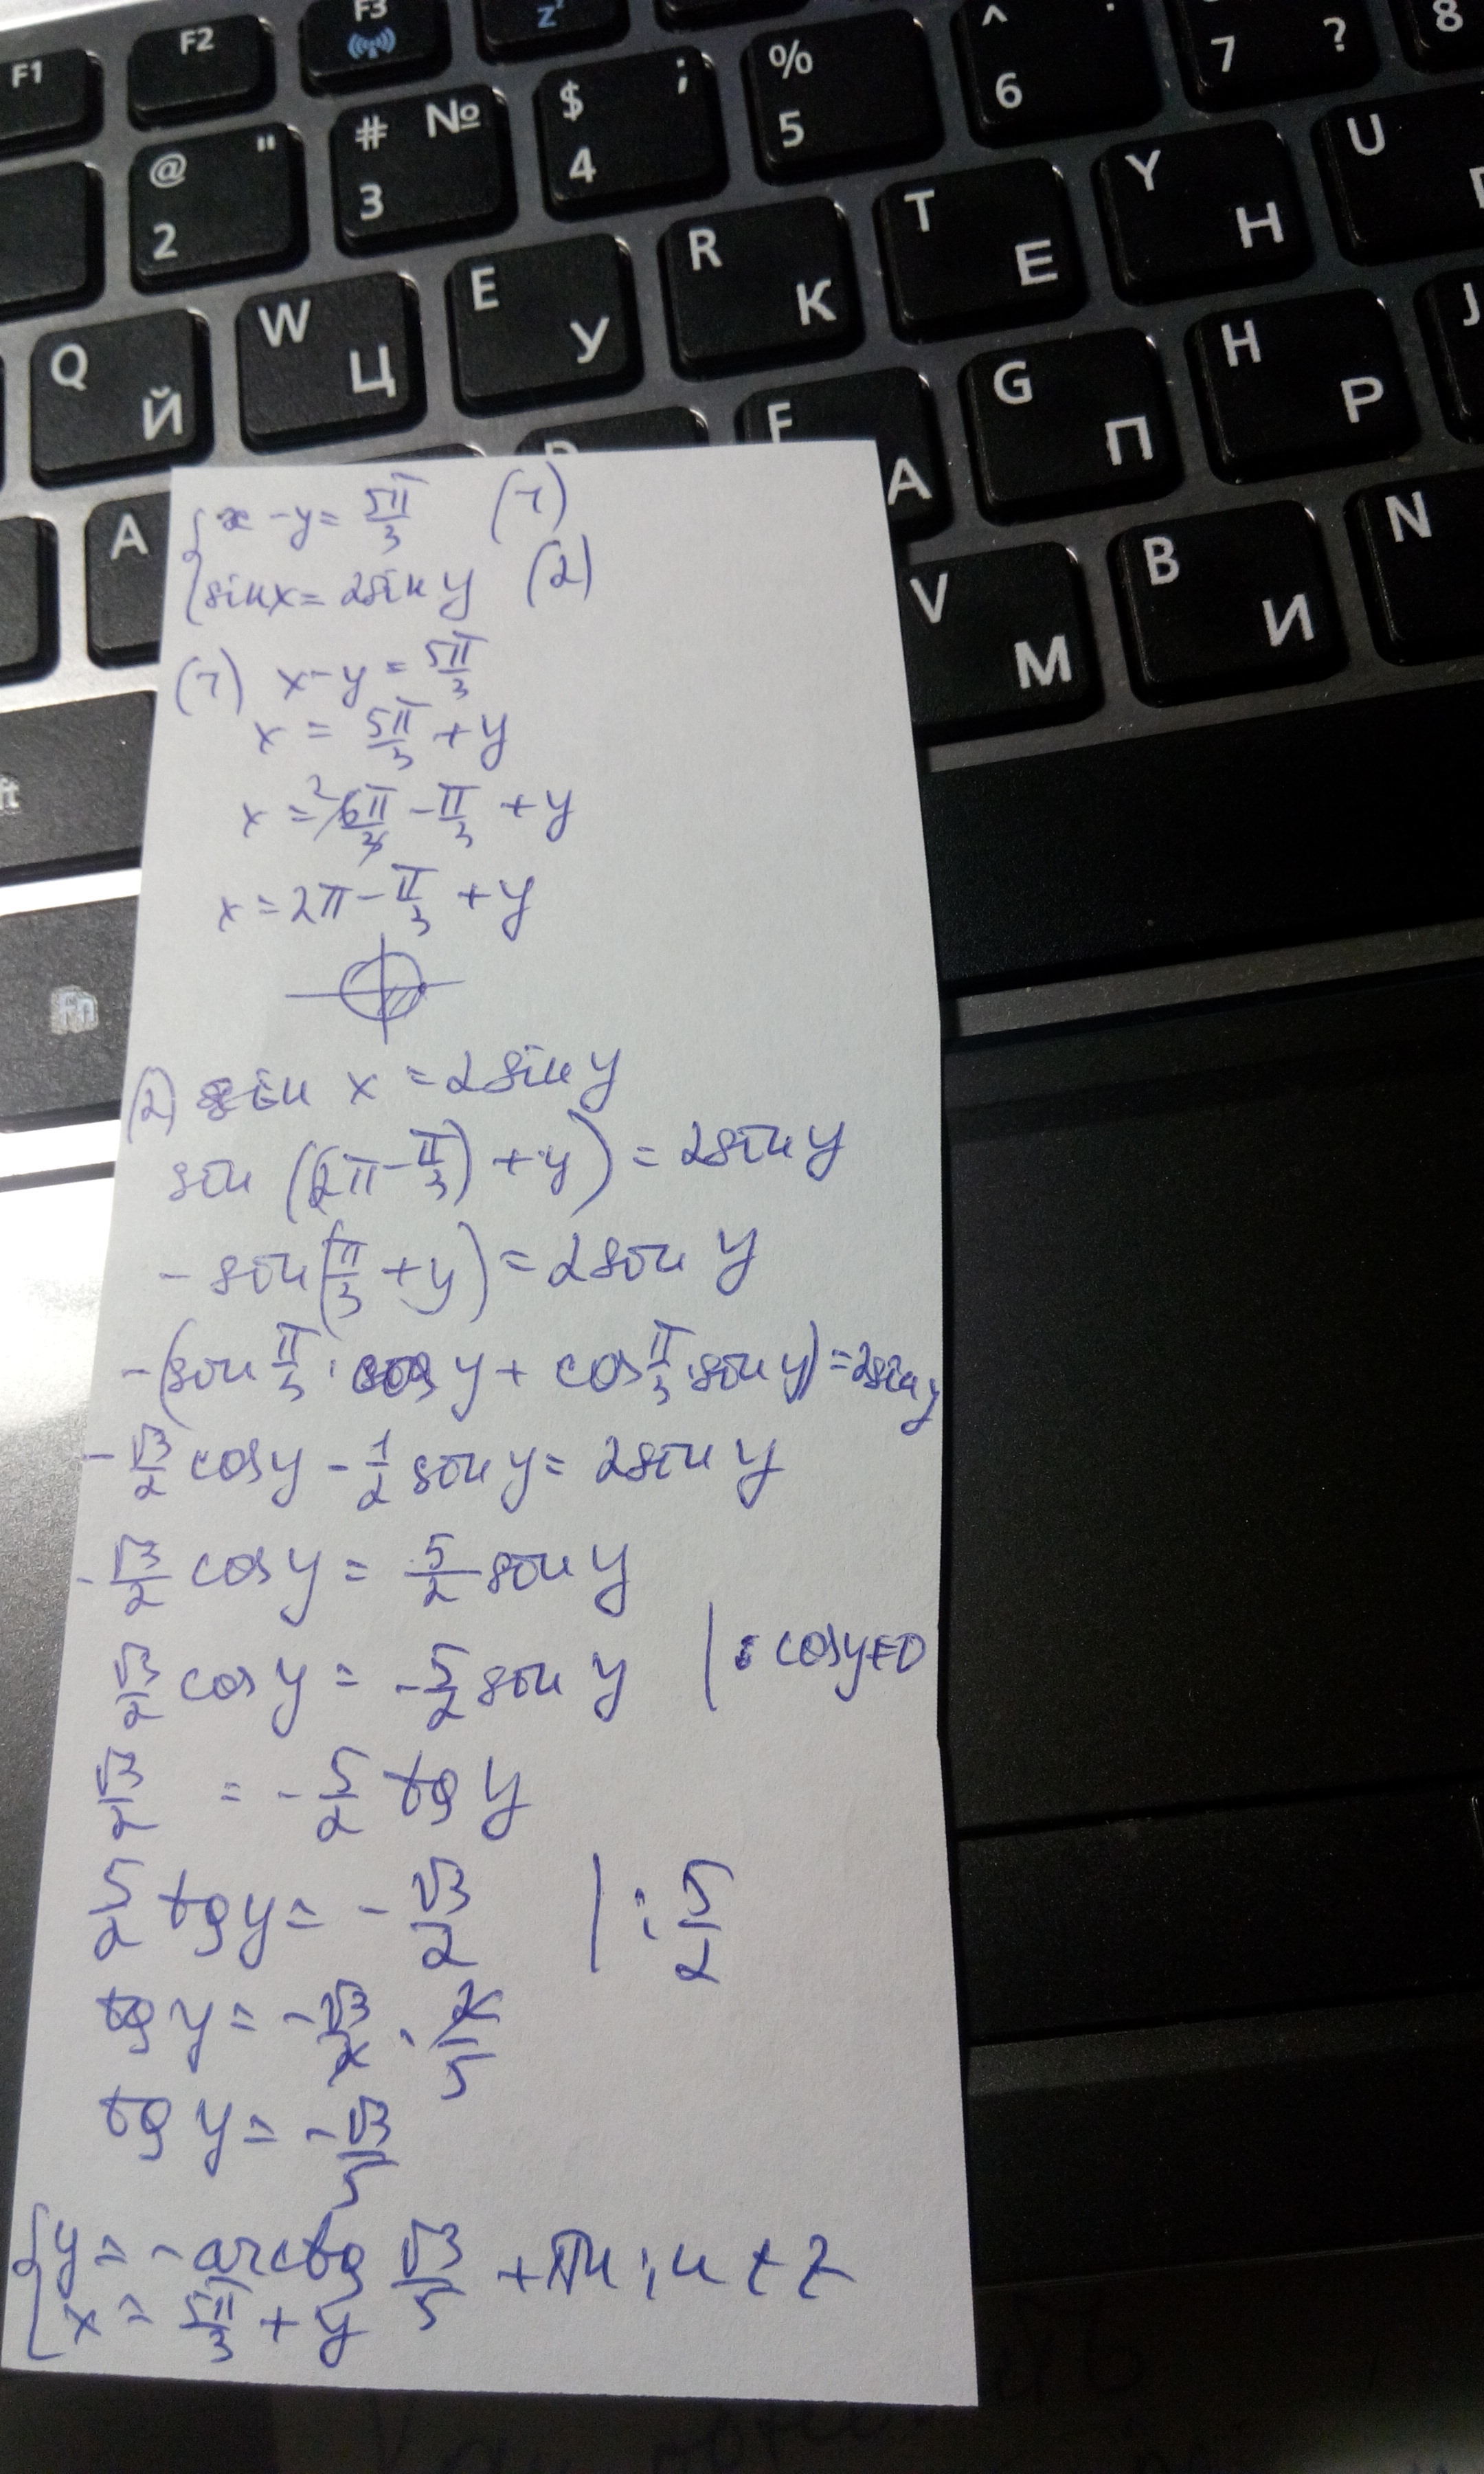 F1 F2 F3 z
@ " 2 # № 3 $ ; 4 % 5 ^ : 6 7 ? 8
Q Й W Ц E У R К T Е Y Н U
A F А G П H Р J
V М B И N
Fn
{ x - y = 5π/3 (1)
{ sin x = 2sin y (2)
(1) x - y = 5π/3
x = 5π/3 + y
x = 2 6π/3 - π/3 + y
x = 2π - π/3 + y
(2) sin x = 2sin y
sin ((2π - π/3) + y) = 2sin y
- sin(π/3 + y) = 2sin y
-(sin π/3 · cos y + cos π/3 · sin y) = 2sin y
- √3/2 cos y - 1/2 sin y = 2sin y
- √3/2 cos y = 5/2 sin y
√3/2 cos y = - 5/2 sin y | : cos y ≠ 0
√3/2 = - 5/2 tg y
5/2 tg y = - √3/2 | : 5/2
tg y = - √3/2 · 2/5
tg y = - √3/5
{ y = - arctg √3/5 + πn ; n ∈ Z
{ x = 5π/3 + y